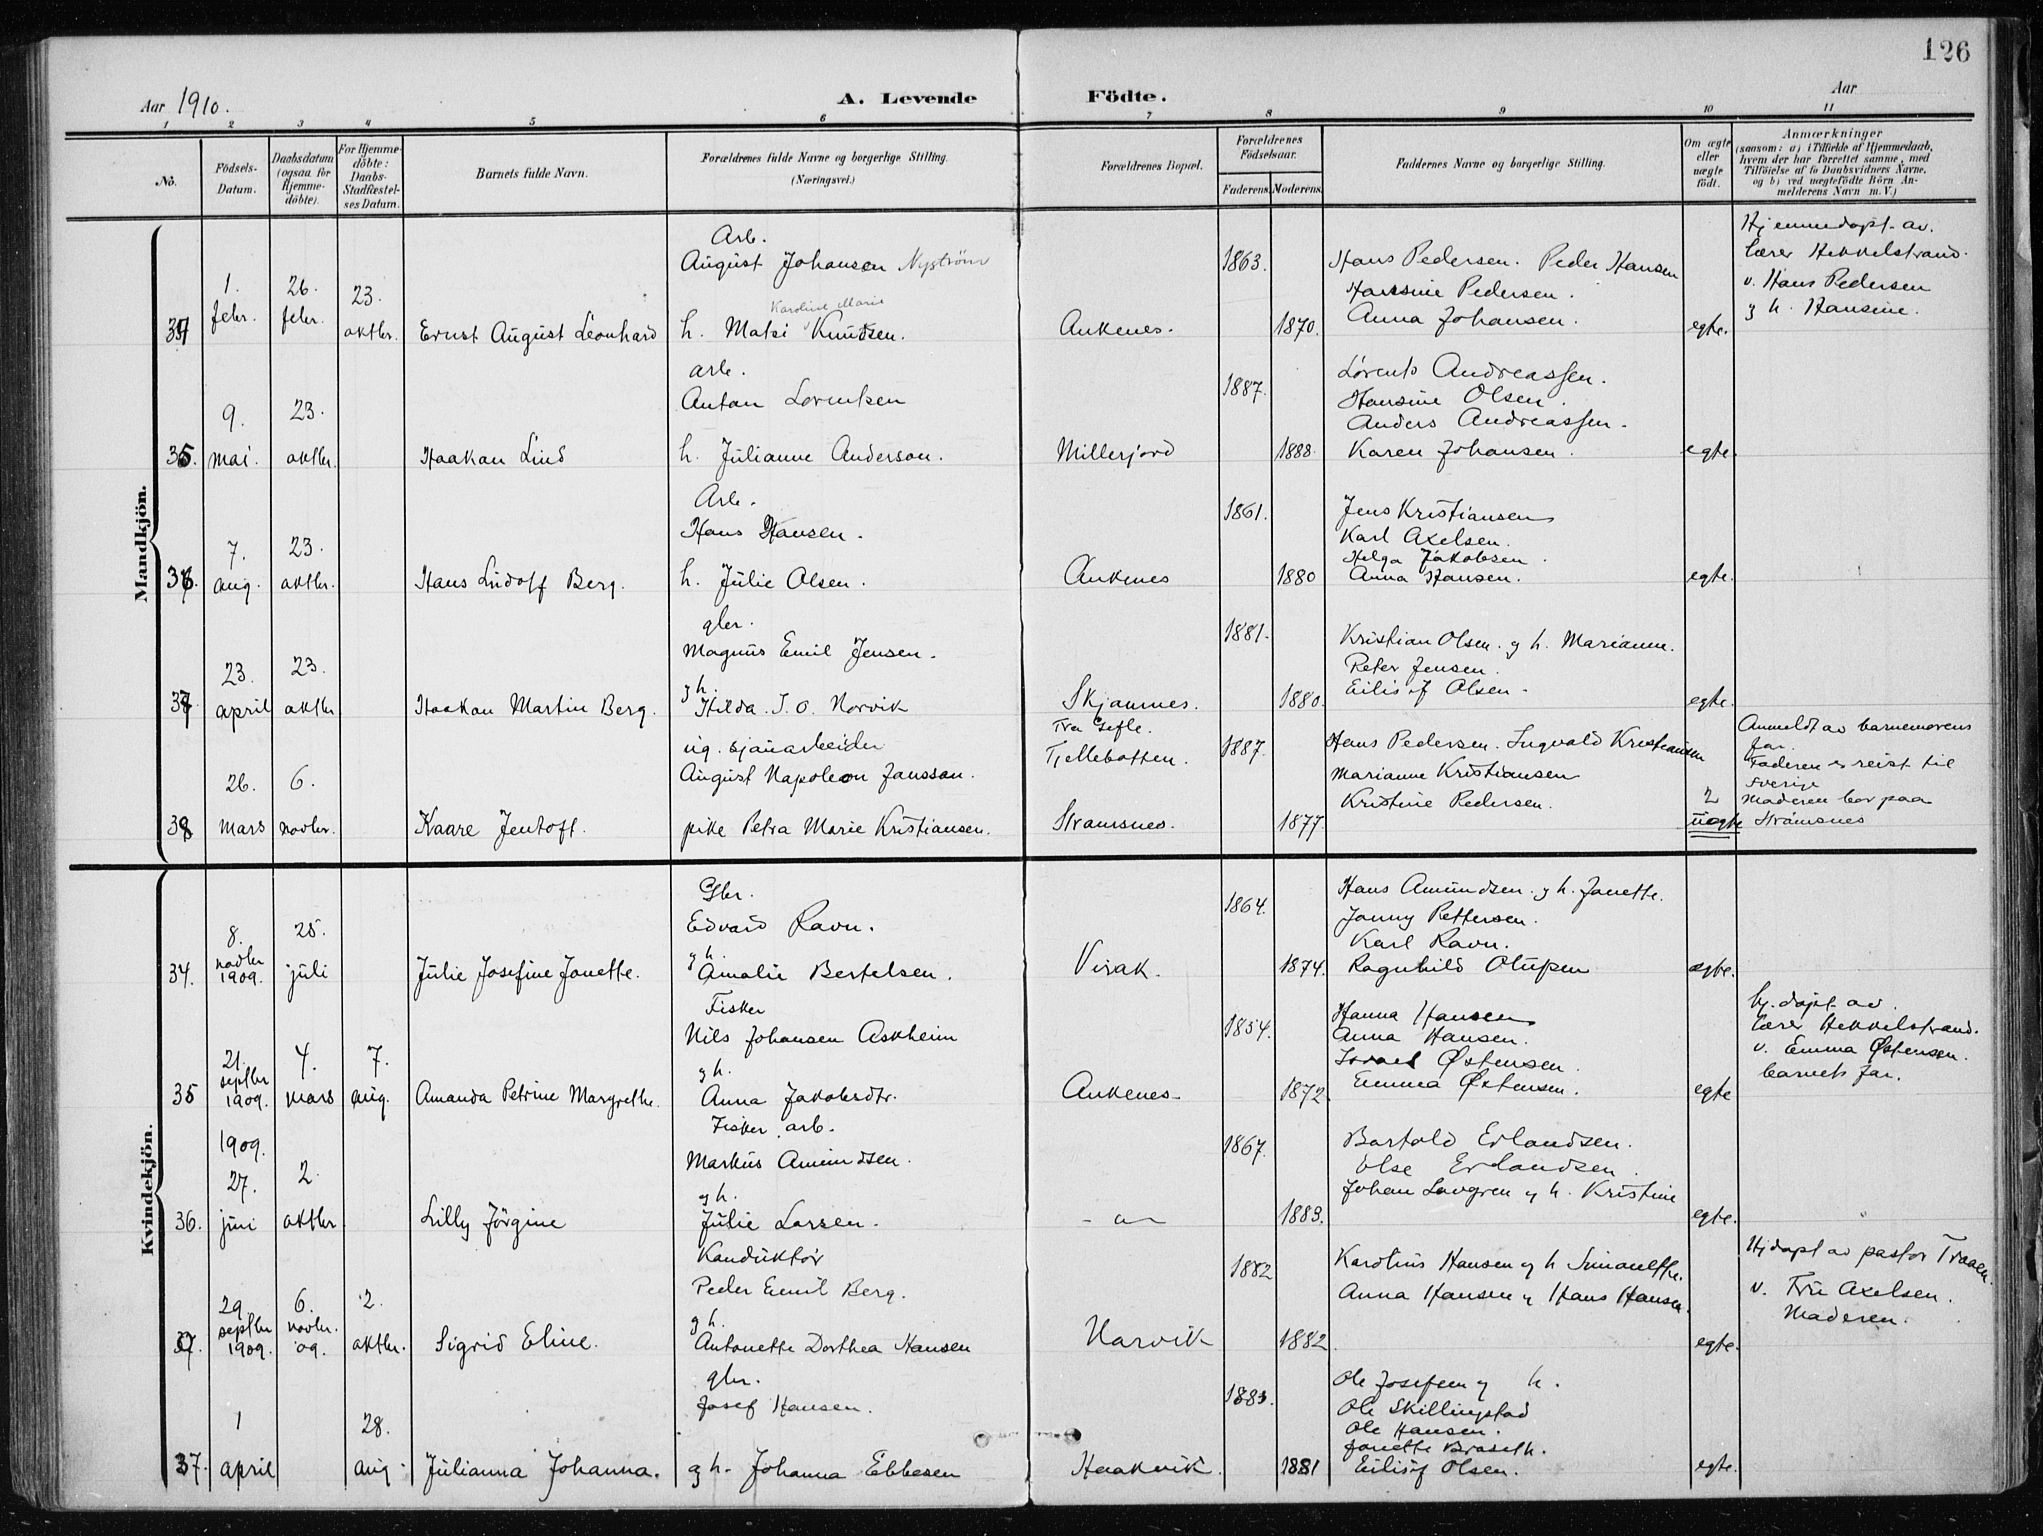 126
Aar 1910.
A. Levende Födte.
Aar
1 2 3 4 5 6 7 8 9 10 11
No.
Födsels-Datum.
Daabsdatum (ogsaa for Hjemme-döbte).
For Hjemme-döbte: Daabs-Stadfæstel-ses Datum.
Barnets fulde Navn.
Forældrenes fulde Navne og borgerlige Stilling. (Næringsvei.)
Forældrenes Bopæl.
Forældrenes Födselsaar.
Faderens. Moderens.
Faddernes Navne og borgerlige Stilling.
Om ægte eller uægte födt.
Anmærkninger
(saasom: a) i Tilfælde af Hjemmedaab,
hvem der har forrettet samme, med
Tilföielse af to Daabsvidners Navne,
og b) ved uægtefödte Börn An-
melderens Navn m. V.)
Mandkjön.
34
1. febr.
26. febr.
23. oktbr.
Ernst August Leonhard
Arb.
August Johansen Nyström
Karoline Marie
h. Matsi Knudsen.
Ankenes.
1863.
1870.
Hans Pedersen. Peder Hansen
Hansine Pedersen.
Anna Johansen.
egte.
Hjemmedøpt av.
lærer Hekkelstrand.
v. Hans Pedersen
g h. Hansine.
35.
9. mai.
23. oktbr.
Haakon Lind
arb.
Anton Lorentsen
h. Julianne Anderson.
Millerjord
1887.
1888.
Lorents Andreassen.
Hansine Olsen.
Anders Andreassen.
Karen Johansen.
egte.
36.
7. aug.
23. oktbr.
Hans Ludolf Berg.
Arb.
Hans Hansen.
h. Julie Olsen.
Ankenes
1861.
1880
Jens Kristiansen
Karl Axelsen.
Helga Jakobsen.
Anna Hansen.
egte.
37
23. april
23. oktbr
Haakon Martin Berg.
gbr.
Magnus Emil Jensen.
g h.
Hilda J. O. Norvik
Skjomnes.
1881.
1880.
Kristian Olsen. g h. Marianne.
Peter Jensen.
Eilisif Olsen.
egte.
38
26. mars
6. novbr.
Kaare Jentoft.
ug. sjauarbeider
August Napoleon Jansson.
pike Petra Marie Kristiansen.
Fra Gefle.
Fjellebotten.
Stramsnes.
1887.
1877.
Hans Pedersen. Ingvald Kristiansen
Marianne Kristiansen
Kristine Pedersen.
2
uegte
Anmeldt av barnemorens
far.
Faderen er reist til
Sverige
Moderen bor paa
Strømsnes
Kvindekjön.
34.
8. novbr 1909.
25. juli
Julie Josefine Jonette.
Gbr.
Edvard Ravn.
g h.
Amalie Bertelsen.
Virak.
1864.
1874.
Hans Amundsen. g h. Jonette.
Jonny Pettersen.
Karl Ravn.
Ragnhild
egte.
35
21. septbr 1909.
4. mars
7. aug.
Amanda Petrine Margrethe.
Fisker
Nils Johansen Askheim
g h.
Anna Jakobsdtr.
Ankenes
1854.
1872.
Hanna Hansen
Anna Hansen.
Israel Østensen.
Emma Østensen.
egte
hj. døpt av.
lærer Hekkelstrand.
v. Emma Østensen.
barnets far.
36.
1909. 27. juni
2. oktbr
Lilly Jörgine
Fisker. arb.
Markus Amundsen.
og h.
Julie Larsen.
1867.
1883.
Bartold Erlandsen.
Else Erlandsen.
Johan Lovgren g h. Kristine
egte.
37.
29. septbr 1909.
6. novbr. 09.
2. oktbr.
Sigrid Eline.
Konduktør
Peder Emil Berg.
g h.
Antonette Dorthea Hansen
Narvik
1882
1882
Karolius Hansen g h Simonette.
Anna Hansen g Hans Hansen.
egte.
Hj døpt av pastor Traaen.
v. Fru Axelsen.
Moderen.
37.
1 april
28. aug.
Julianna Johanna.
gbr.
Josef Hansen.
g h. Johanna Ebbesen
Haakvik.
1883.
1881
Ole Josefsen g h.
Ole Skillingstad
Ole Hansen.
Jonette
Eilisif Olsen.
egte.